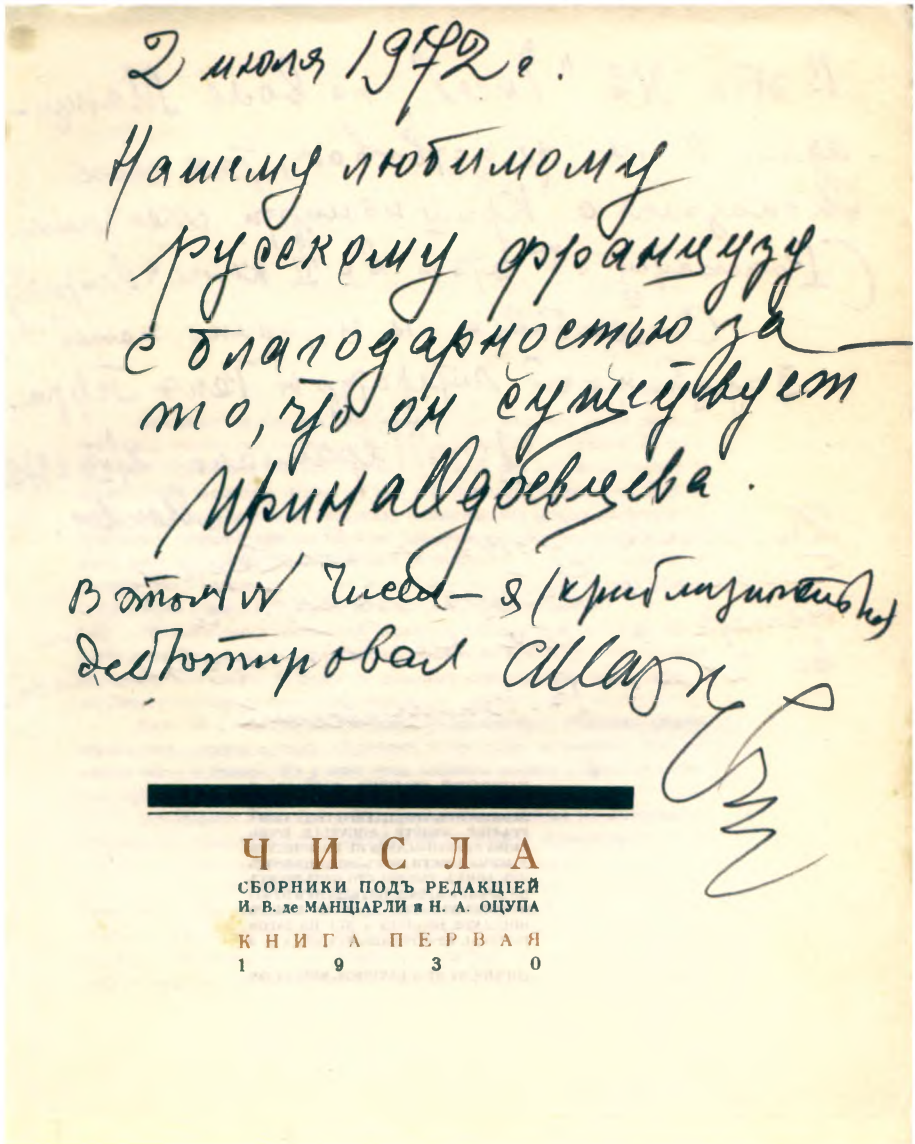 2 июля 1972 г.
Нашему любимому
русскому французу
с благодарностью за
то, что он существует
Ирина Одоевцева.
В этом № Чисел – я (приблизительно)
дебютировал
ЧИСЛА
СБОРНИКИ ПОДЪ РЕДАКЦІЕЙ
И. В. де МАНЦІАРЛИ и Н. А. ОЦУПА
КНИГА ПЕРВАЯ
1930